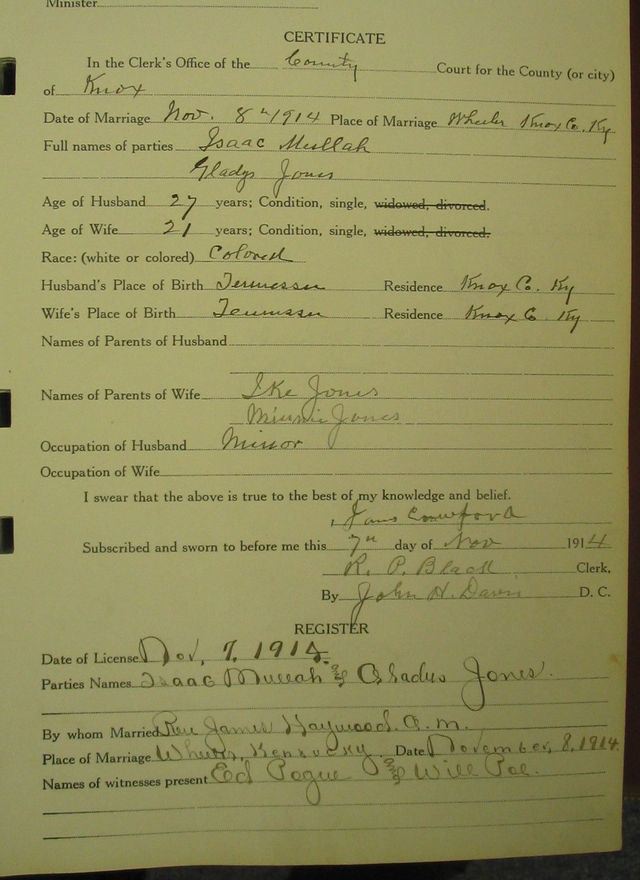 Minister
CERTIFICATE
In the Clerk's Office of the County Court for the County (or city)
of Knox
Date of Marriage Nov. 8th 1914 Place of Marriage Wheeler Knox Co. Ky
Full names of parties Isaac Mullah
Gladys Jones
Age of Husband 27 years; Condition, single, widowed, divorced.
Age of Wife 21 years; Condition, single, widowed, divorced.
Race: (white or colored) Colored
Husband's Place of Birth Tennessee Residence Knox Co. Ky
Wife's Place of Birth Tennessee Residence Knox Co Ky
Names of Parents of Husband
Names of Parents of Wife Ike Jones
Minnie Jones
Occupation of Husband
Occupation of Wife
I swear that the above is true to the best of my knowledge and belief.
Crawford
Subscribed and sworn to before me this 7th day of Nov 1914
R. P. Black Clerk,
By John H. Davis D. C.
REGISTER
Date of License Nov, 7, 1914.
Parties Names Isaac Mullah & Gladys Jones.
By whom Married Rev James Haywood. C. M.
Place of Marriage Kentucky. Date November, 8, 1914.
Names of witnesses present Ed Pogue & Will Poe.